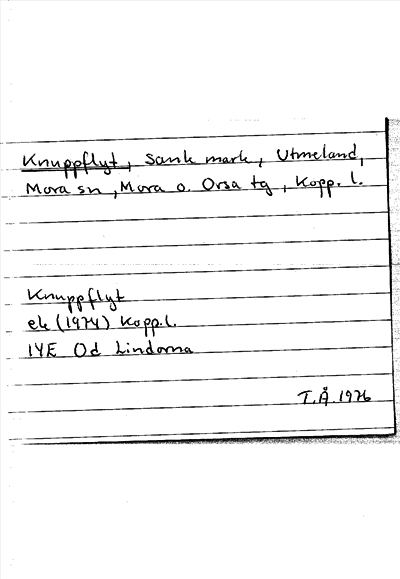 Knuppflyt, Sank mark, Utmeland,
Mora sn, Mora o. Orsa tg, Kopp. l.
Knuppflyt
ek (1974) Kopp.l.
14E Od Lindorna
T.Å. 1976